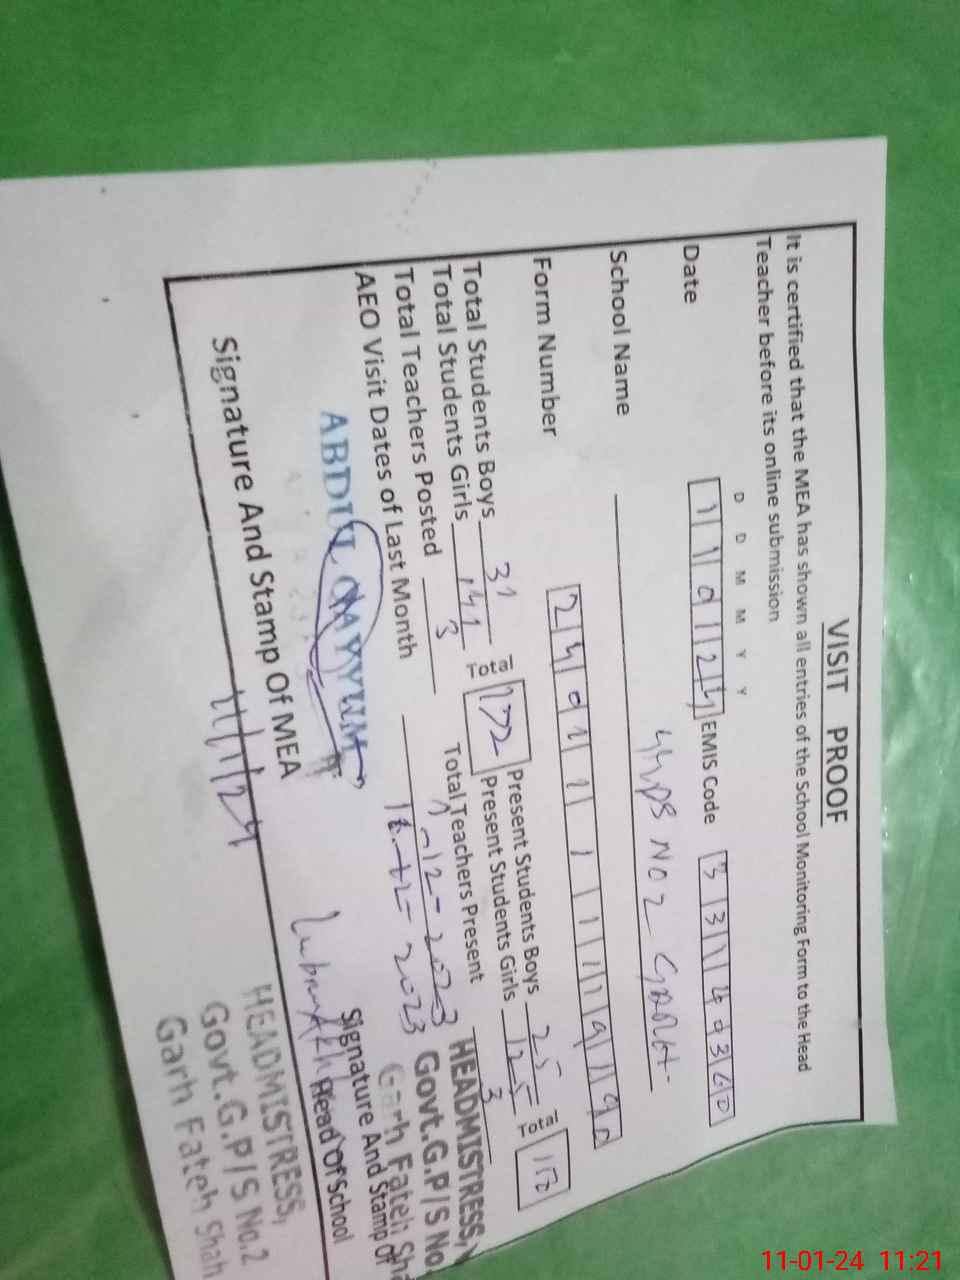 VISIT PROOF
It is certified that the MEA has shown all entries of the School Monitoring Form to the Head
Teacher before its online submission
D D M M Y Y
Date 11 01 24 EMIS Code 33140360
School Name GGPS NO 2 GARH
Form Number
Total Students Boys 31 Total 172 Present Students Boys 25 Total 150
Total Students Girls 141 Present Students Girls 125
Total Teachers Posted 3 Total Teachers Present 3
AEO Visit Dates of Last Month -12-2023
-12-2023
ABDUL QAYYUM
HEADMISTRESS,
Govt.G.P/S No.
Garh Fateh Sha
Signature And Stamp Of MEA
11/1/24
Signature And Stamp Of
Head Of School
HEADMISTRESS,
Govt.G.P/S No.2
Garh Fateh Shah
11-01-24 11:21